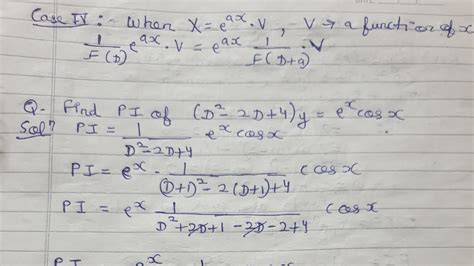 Case IV :- When X = e^{ax}·V , V → a function of x
1/F(D) e^{ax}·V = e^{ax} 1/F(D+a) · V
Q. Find PI of (D² - 2D + 4)y = e^x cos x
Sol? PI = 1/(D² - 2D + 4) e^x cos x
PI = e^x · 1/((D+1)² - 2(D+1) + 4) (cos x
PI = e^x 1/(D² + 2D + 1 - 2D - 2 + 4) (cos x